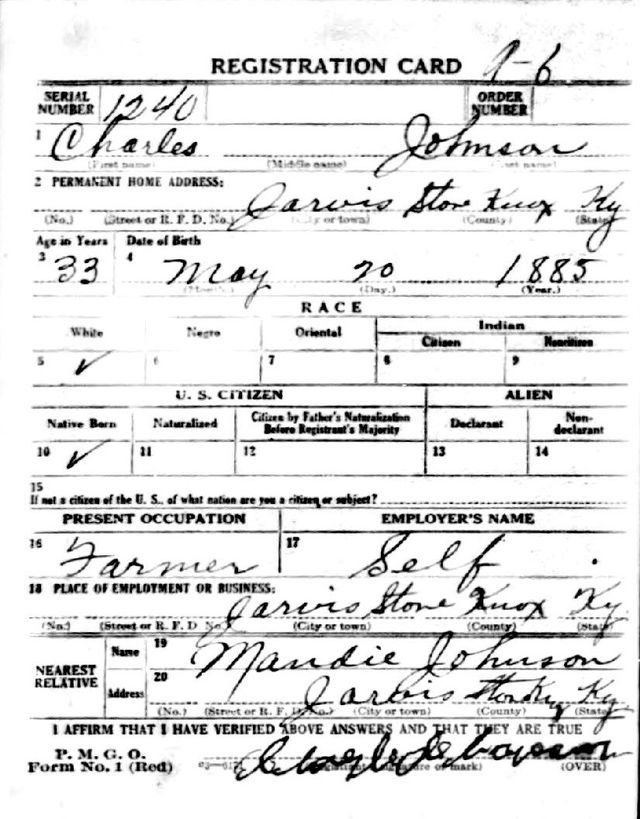 REGISTRATION CARD
SERIAL NUMBER 1240 ORDER NUMBER
1 Charles Johnson
(First name) (Middle name) (Last name)
2 PERMANENT HOME ADDRESS:
Jarvis Store Knox Ky
(No.) (Street or R. F. D. No.) (City or town) (County) (State)
Age in Years Date of Birth
3 33 4 May 20 1885
(Month.) (Day.) (Year.)
RACE
White Negro Oriental Indian
Citizen Noncitizen
5 ✓ 6 7 8 9
U. S. CITIZEN ALIEN
Native Born Naturalized Citizen by Father's Naturalization Before Registrant's Majority Declarant Non-declarant
10 ✓ 11 12 13 14
15
If not a citizen of the U. S., of what nation are you a citizen or subject?
PRESENT OCCUPATION EMPLOYER'S NAME
16 Farmer 17 Self
18 PLACE OF EMPLOYMENT OR BUSINESS:
Jarvis Store Knox Ky
(No.) (Street or R. F. D. No.) (City or town) (County) (State)
NEAREST RELATIVE Name 19 Mandie Johnson
Address 20 Jarvis Store Ky
(No.) (Street or R. F. D. No.) (City or town) (County) (State)
I AFFIRM THAT I HAVE VERIFIED ABOVE ANSWERS AND THAT THEY ARE TRUE
P. M. G. O.
Form No. 1 (Red) (Registrant's signature or mark) (OVER)